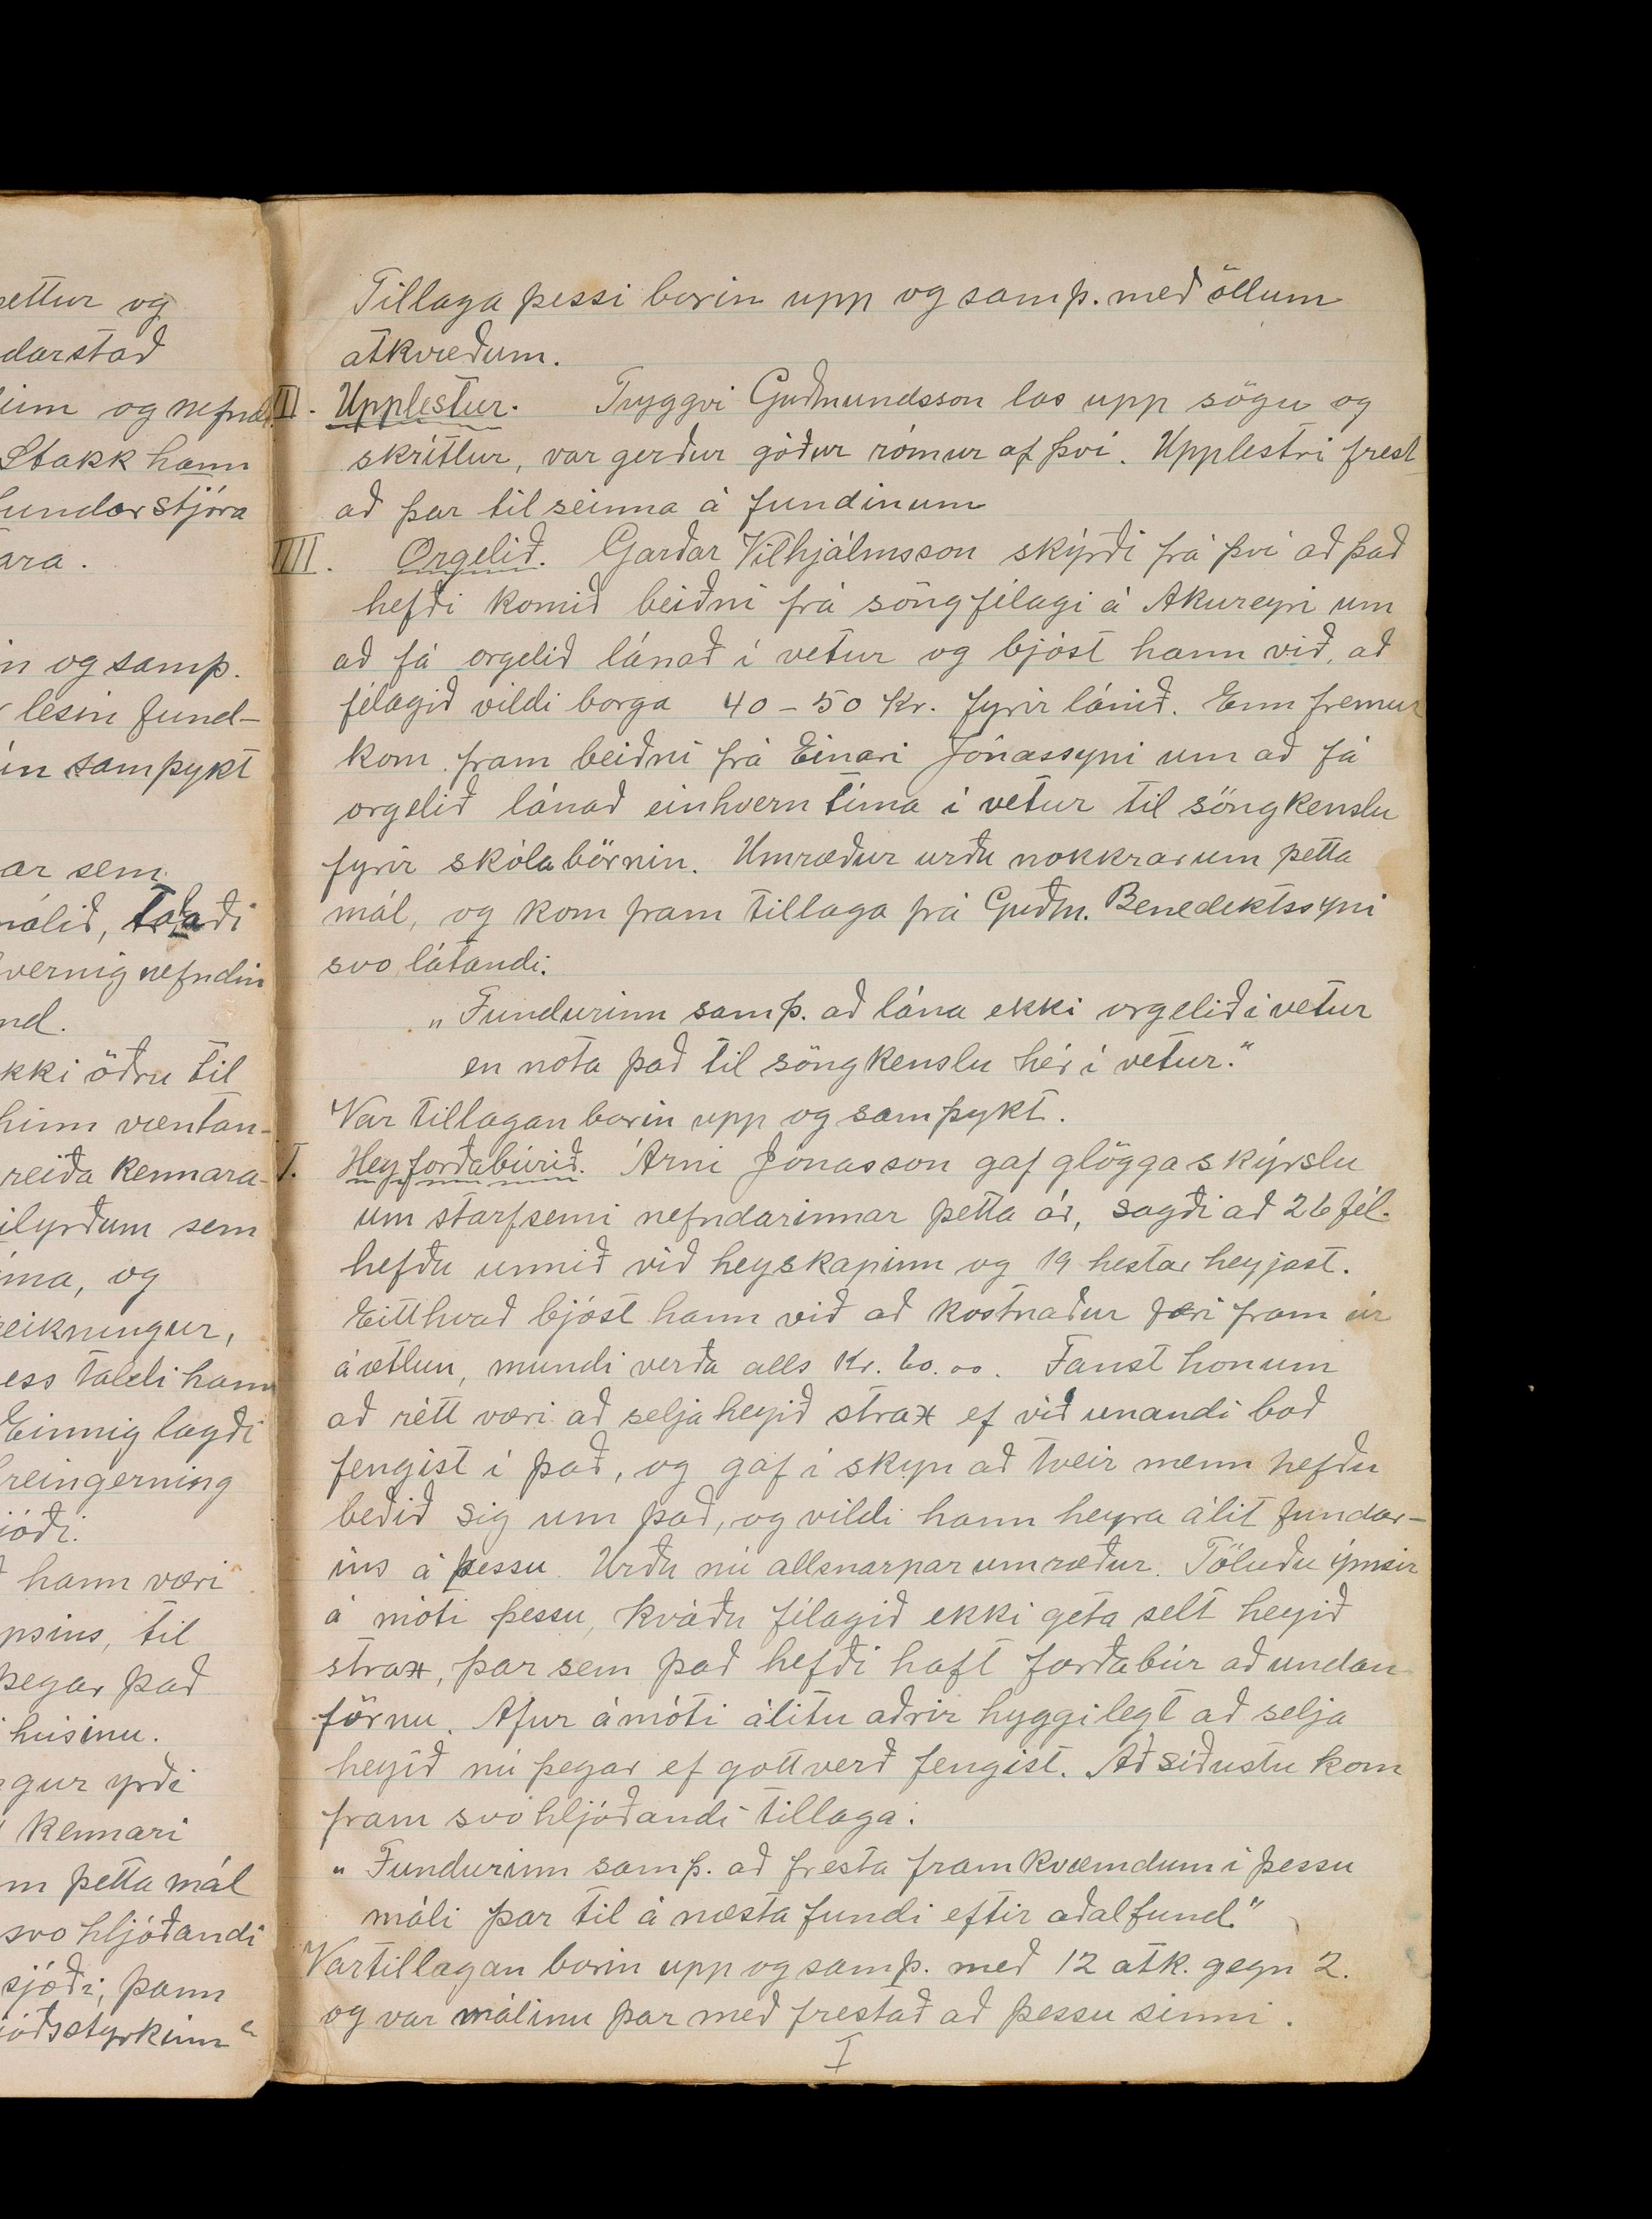 ettur og
darstað
um og nefnd
Stakk hann
fundarstjóra
ara.
in og samþ.
lesin fund-
in samþykt
ar sem
málið, talaði
vernig nefndin
nd.
kki öðru til
hinn væntan-
reiða kennara-
ilyrðum sem
ma, og
reikningur,
ess taldi hann
Einnig lagði
hreingerning
jóði.
hann væri
psins, til
þegar það
húsinu.
gur yrði
Kennari
m þetta mál
svo hljóðandi
sjóði, þann
jóðsstyrkinn"
Tillaga þessi borin upp og samþ. með öllum
atkvæðum.
III. Upplestur. Tryggvi Guðmundsson las upp sögu og
skrítlur, var gerður góður rómur af því. Upplestri frest
að þar til seinna á fundinum
IIII. Orgelið. Garðar Vilhjálmsson skýrði frá því að það
hefði komið beiðni frá söngfélagi á Akureyri um
að fá orgelið lánað í vetur og bjóst hann við, að
félagið vildi borga 40-50 Kr. fyrir lánið. Enn fremur
kom fram beiðni frá Einari Jónassyni um að fá
orgelið lánað einhvern tíma í vetur til söngkenslu
fyrir skólabörnin. Umræður urðu nokkrar um þetta
mál, og kom fram tillaga frá Guðm. Benediktssyni
svo látandi:
„Fundurinn samþ. að lána ekki orgelið í vetur
en nota það til söngkenslu hér í vetur."
Var tillagan borin upp og samþykt.
V. Heyforðabúrið. Árni Jónasson gaf glögga skýrslu
um starfsemi nefndarinnar þetta ár, sagði að 26 fél.
hefðu unnið við heyskapinn og 19 hestar heyjast.
Eitthvað bjóst hann við að kostnaður færi fram úr
áætlun, mundi verða alls Kr. 60.00. Fanst honum
að rétt væri að selja heyið strax ef viðunandi boð
fengist í það, og gaf í skyn að tveir menn hefðu
beðið sig um það, og vildi hann heyra álit fundar-
ins á þessu. Urðu nú allsnarpar umræður. Töluðu ýmsir
á móti þessu, kváðu félagið ekki geta selt heyið
strax, þar sem það hefði haft forðabúr að undan
förnu. Afur ámóti álitu aðrir hyggilegt að selja
heyið nú þegar ef gott verð fengist. Að síðustu kom
fram svo hljóðandi tillaga:
„Fundurinn samþ. að fresta framkvæmdum í þessu
máli þar til á næsta fundi eftir aðalfund."
Var tillagan borin upp og samþ. með 12 atk. gegn 2.
og var málinu þar með frestað að þessu sinni.
I